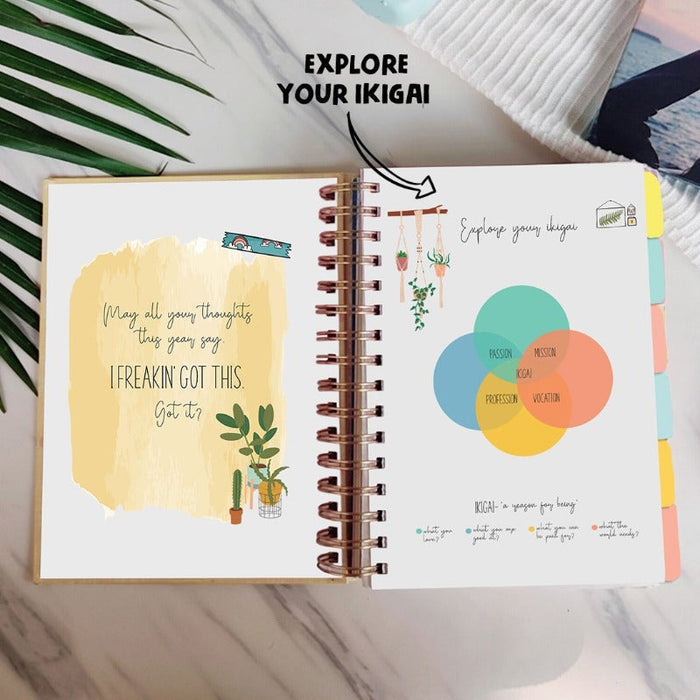 EXPLORE
YOUR IKIGAI
May all your thoughts
this year say.
I FREAKIN' GOT THIS.
Got it?
Explore your ikigai
PASSION
MISSION
IKIGAI
PROFESSION
VOCATION
IKIGAI- 'a reason for being'
what you
love?
what you are
good at?
what you can
be paid for?
what the
world needs?